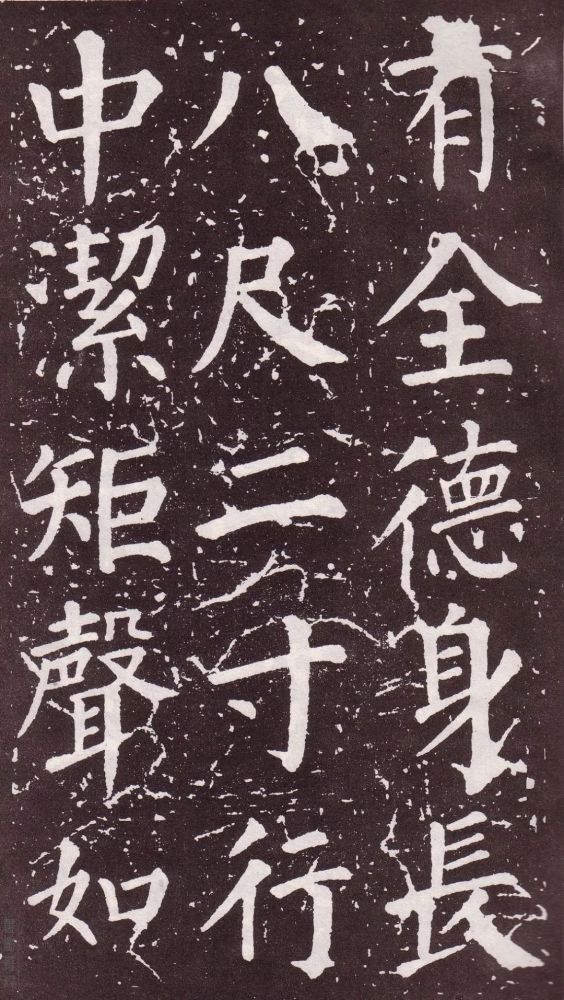 有全德身長
八尺二寸行
中潔矩聲如